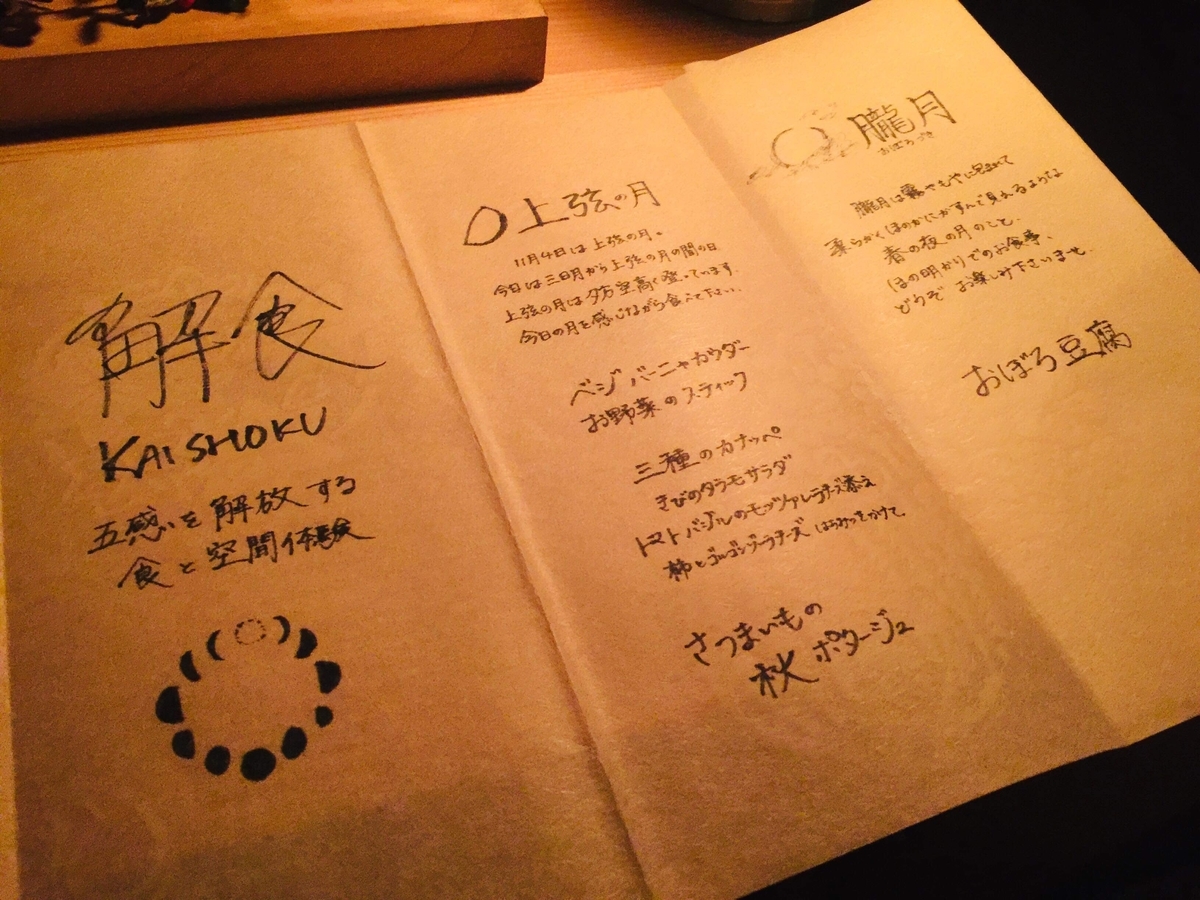 解食
KAISHOKU
五感を解放する
食と空間体験
上弦の月
11月4日は上弦の月。
今日は三日月から上弦の月の間の日
上弦の月は夕方空高く登っています。
今日の月を感じながら食べて下さい。
ベジバーニャカウダー
お野菜のスティック
三種のカナッペ
きびのタラモサラダ
トマトバジルのモッツァレラチーズ添え
柿とゴルゴンゾーラチーズ はちみつをかけて
さつまいもの
秋ポタージュ
朧月
おぼろづき
朧月は霧やもやに包まれて
柔らかくほのかにかすんで見えるような
春の夜の月のこと。
ほの明かりでのお食事、
どうぞお楽しみ下さいませ。
おぼろ豆腐